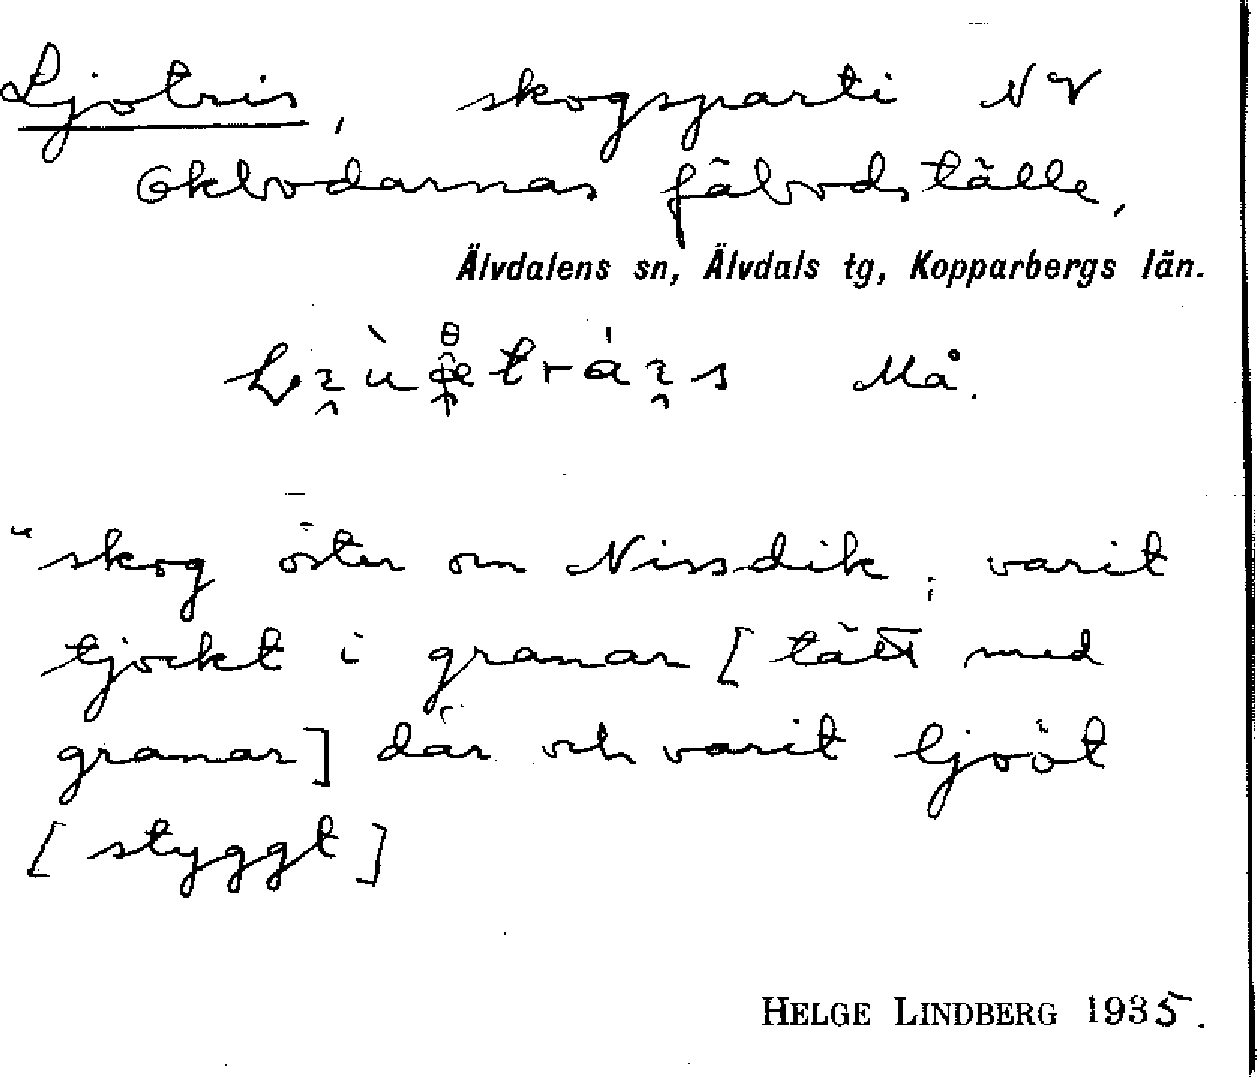 Ljotris, skogsparti NV
Okbodarnas fäbodställe,
Älvdalens sn, Älvdals tg, Kopparbergs län.
Må.
"skog öster om Nissdik, varit
tjockt i granar [tätt med
granar] där och varit ljoöt
[styggt]
HELGE LINDBERG 1935.